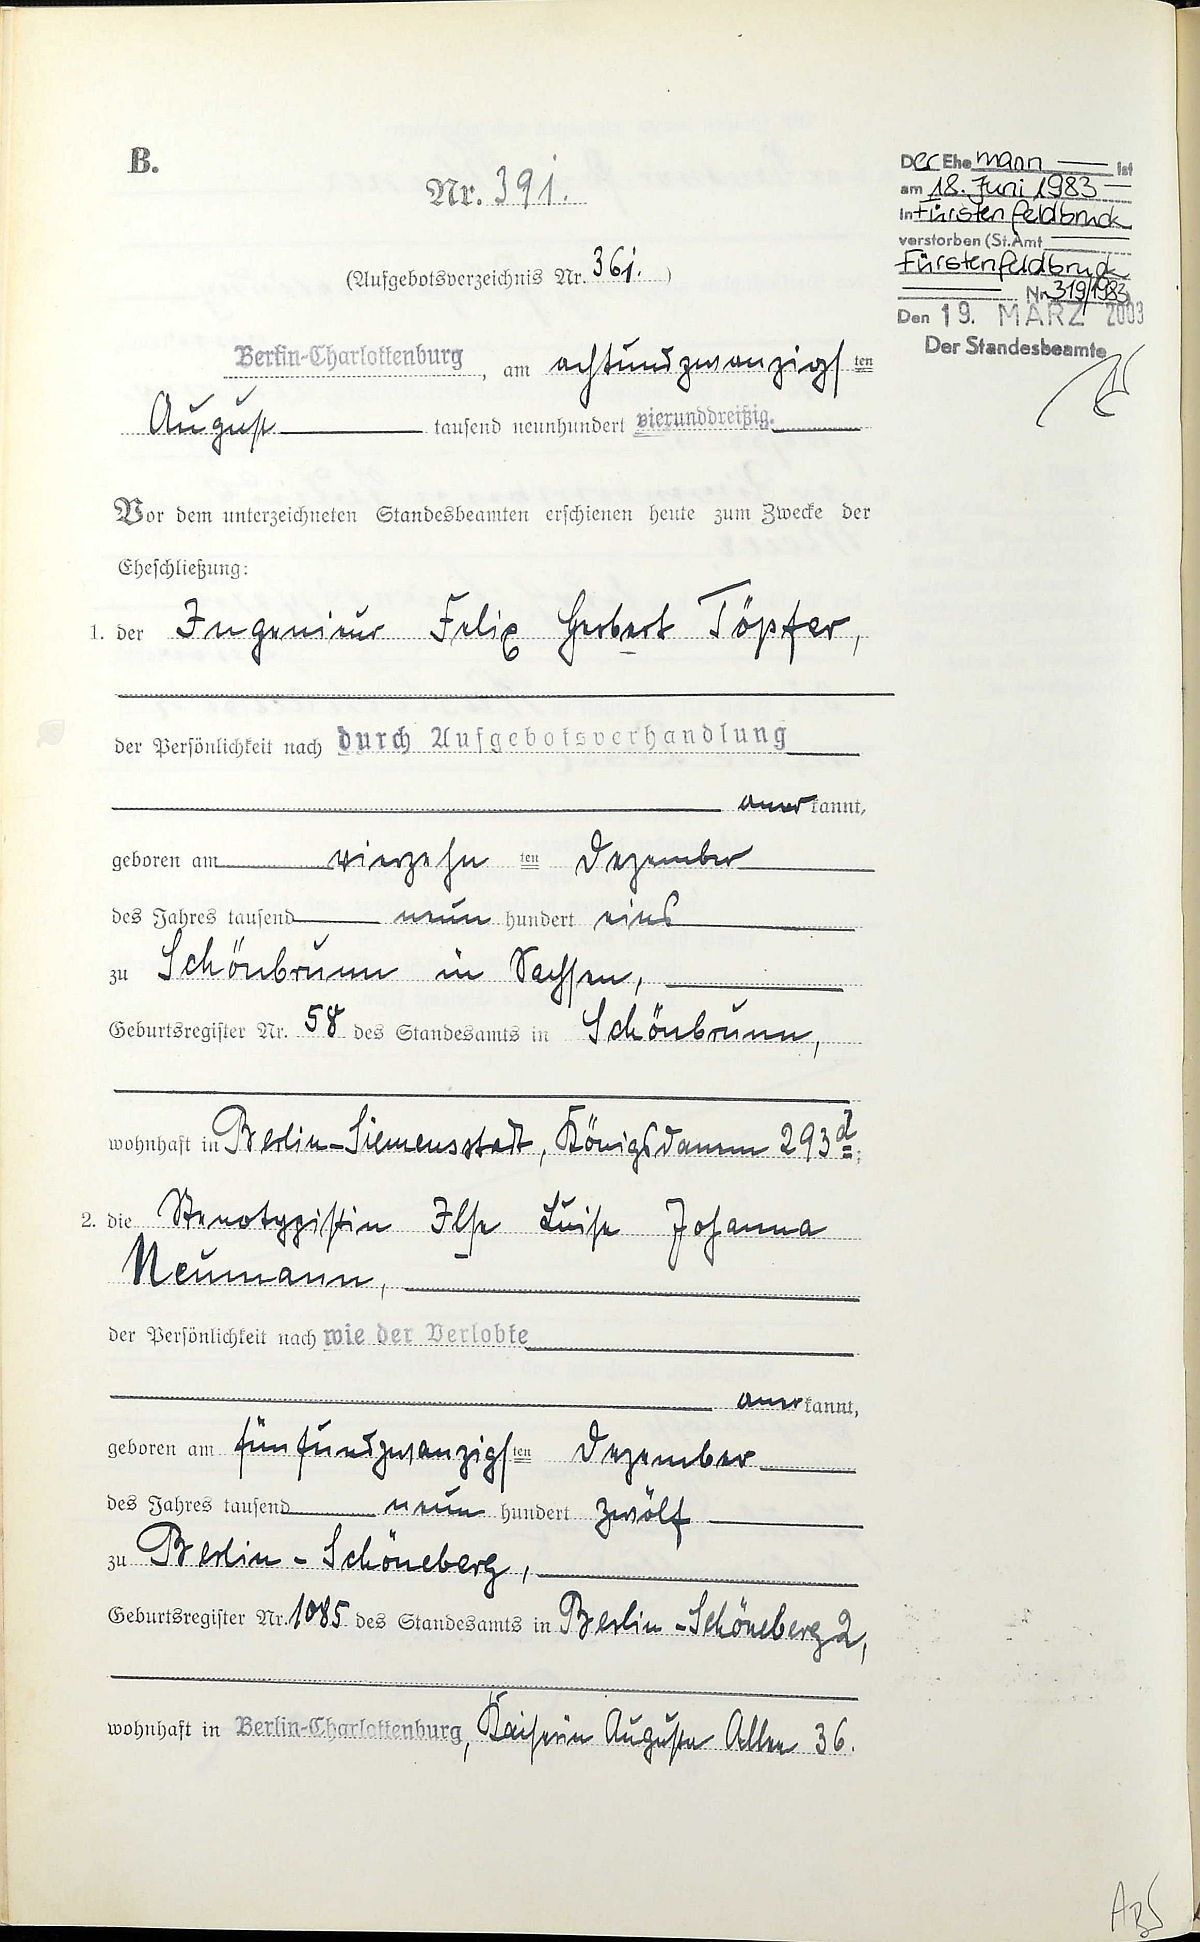 B.
Nr. 391.
(Aufgebotsverzeichnis Nr. 361.)
Berlin-Charlottenburg, am achtundzwanzigsten
August tausend neunhundert vierunddreißig.
Vor dem unterzeichneten Standesbeamten erschienen heute zum Zwecke der
Eheschließung:
1. der Ingenieur Felix Herbert Töpfer,
der Persönlichkeit nach durch Aufgebotsverhandlung
anerkannt,
geboren am vierzehnten Dezember
des Jahres tausend neun hundert eins
zu Schönbrunn in Sachsen,
Geburtsregister Nr. 58 des Standesamts in Schönbrunn,
wohnhaft in Berlin-Siemensstadt, Königsdamm 293d;
2. die Stenotypistin Ilse Luise Johanna
Neumann,
der Persönlichkeit nach wie der Verlobte
anerkannt,
geboren am fünfundzwanzigsten Dezember
des Jahres tausend neun hundert zwölf
zu Berlin-Schöneberg,
Geburtsregister Nr. 1085 des Standesamts in Berlin-Schöneberg 2,
wohnhaft in Berlin-Charlottenburg, Kaiserin Augusta Allee 36.
Der Ehemann ist
am 18. Juni 1983
in Fürstenfeldbruck
verstorben (St.Amt
Fürstenfeldbruck
Nr. 319/1983)
Den 19. MÄRZ 2003
Der Standesbeamte